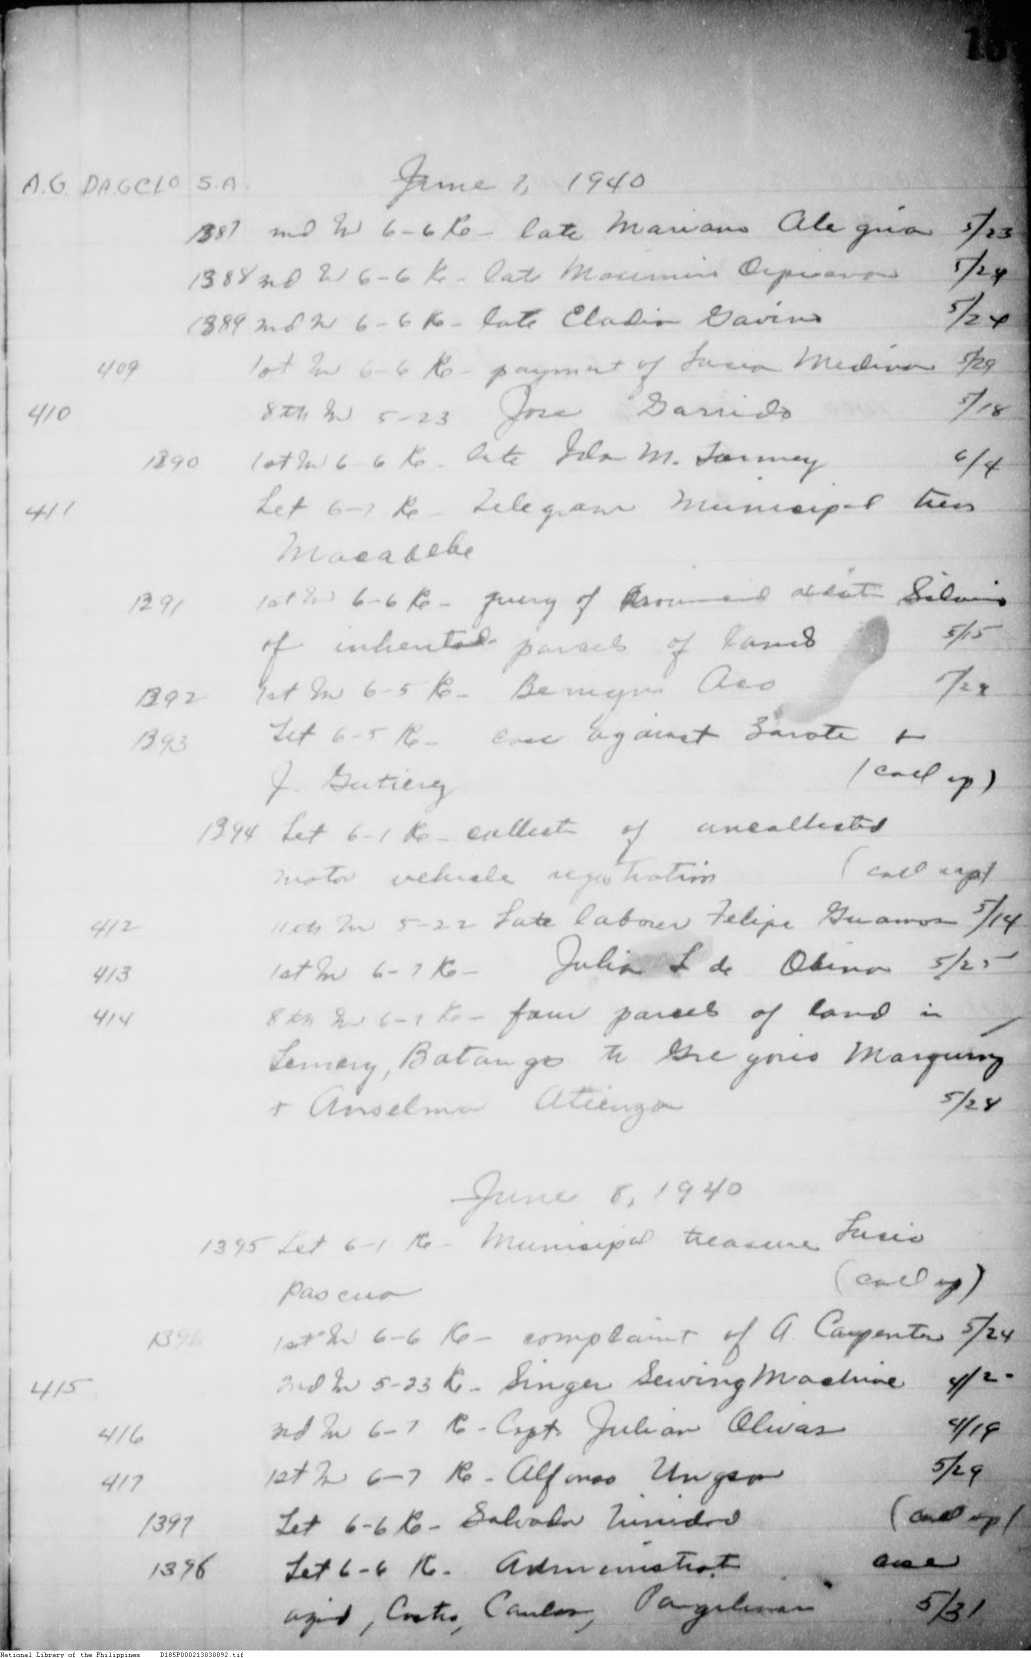 A.G. DAGCIO S.A. June 7, 1940
1387 2nd In 6-6 Re - late Mariano Alegria 5/23
1388 2nd In 6-6 Re - late 5/24
1389 2nd In 6-6 Re - late Eladio Gavino 5/24
409 1st In 6-6 Re - payment of Lucia Medina 5/29
410 8th In 5-23 Jose Garrido 5/18
1390 1st In 6-6 Re - late Ida M. 6/4
411 Let 6-7 Re - Telegram Municipal treas
Macabebe
1291 1st In 6-6 Re - query of
of inherited parcels of land 5/15
1392 1st In 6-5 Re - Benigno Aco
1393 Let 6-5 Re - case against Zarote +
J. Gutierez (call up)
1394 Let 6-1 Re - collect of uncollected
motor vehicle registration (call up)
412 11th In 5-22 Late laborer Felipe 5/14
413 1st In 6-7 Re - Julia L de 5/25
414 8th In 6-7 Re - four parcels of land in
Lemery, Batangas to Gregorio
+ Anselma Atienza 5/28
June 8, 1940
1395 Let 6-1 Re - Municipal treasurer Lucio
Pascua (call up)
1396 1st In 6-6 Re - complaint of A. Carpenter 5/24
415 2nd In 5-23 Re - Singer Sewing Machine
416 2nd In 6-7 Re - Capt Julian Olivas 4/19
417 1st In 6-7 Re - Alfonso Ungson 5/29
1397 Let 6-6 Re - Salvador Trinidad (call up)
1396 Let 6-6 Re - Administrat. case
Castro, 5/31
National Library of the Philippines D185P000213838892.tif